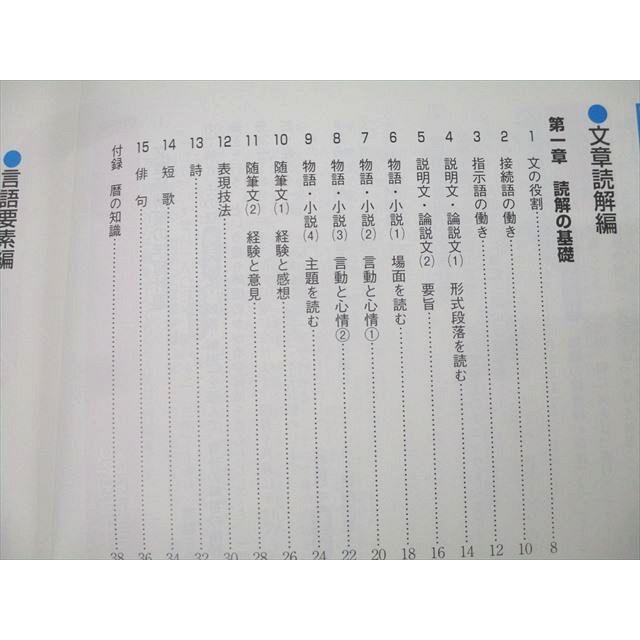 ●文章読解編
第一章 読解の基礎
1 文の役割 8
2 接続語の働き 10
3 指示語の働き 12
4 説明文・論説文(1) 形式段落を読む 14
5 説明文・論説文(2) 要旨 16
6 物語・小説(1) 場面を読む 18
7 物語・小説(2) 言動と心情① 20
8 物語・小説(3) 言動と心情② 22
9 物語・小説(4) 主題を読む 24
10 随筆文(1) 経験と感想 26
11 随筆文(2) 経験と意見 28
12 表現技法 30
13 詩 32
14 短歌 34
15 俳句 36
付録 暦の知識 38
●言語要素編